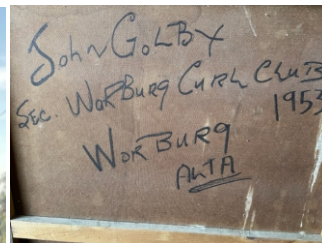 John GOLBY
SEC. WORBURG CURL CLUB
1953
WORBURG
ALTA